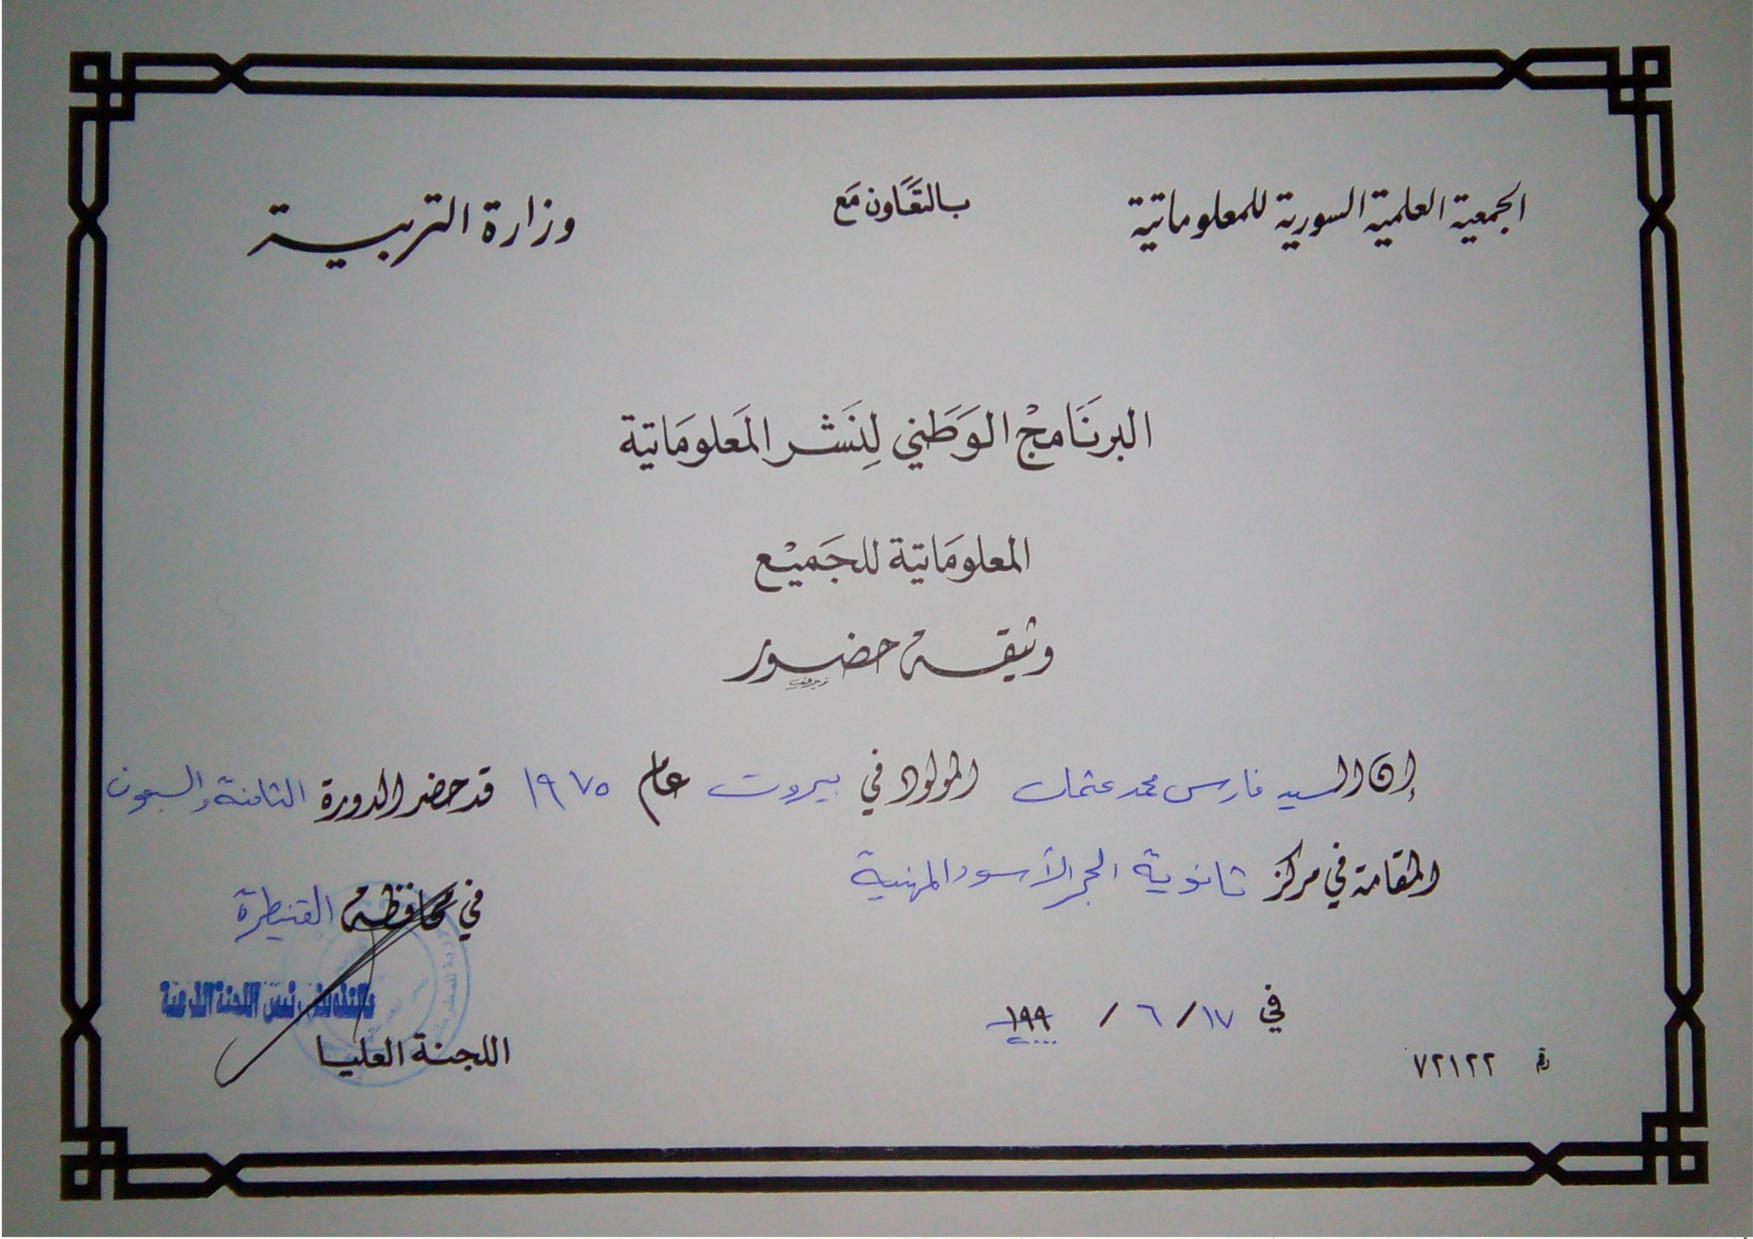 الجمعية العلمية السورية للمعلوماتية بالتعَاون مَع وزارة التربية
البرنَامجْ الوَطَني لِنَشر المَعلومَاتية
المعلومَاتية للجَميْع
وثيقة حضور
إن السيد فارس محمد عثمان المولود في بيروت عام ١٩٧٥ قد حضر الدورة الثامنة والسبعون
المقامة في مركز ثانوية الحجر الأسود المهنية
في محافظة القنيطرة
بالتفويض رئيس اللجنة الفرعية
في ١٧ / ٦ / ١٩٩ ٢٠٠٠
اللجنة العليا
رقم ٧٢١٢٢